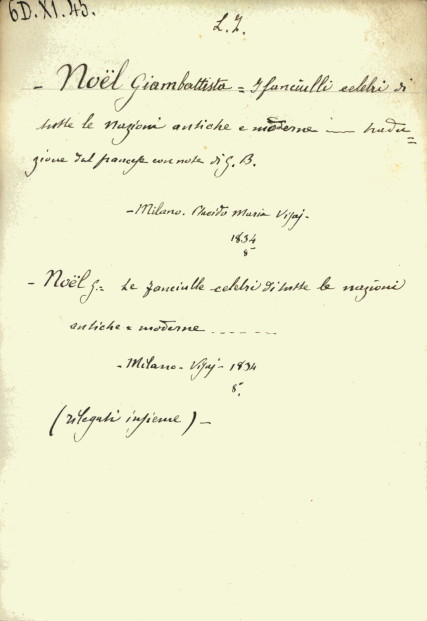 6D.XI.45.
L. I.
- Noël Giambattista = I fanciulli celebri di
tutte le nazioni antiche e moderne ---- tradu=
zione dal francese con note di G. B.
- Milano. Placido Maria Visaj -
1834
8°
- Noël G.= Le fanciulle celebri di tutte le nazioni
antiche e moderne -------
- Milano - Visaj - 1834
8°.
(rilegati insieme) -